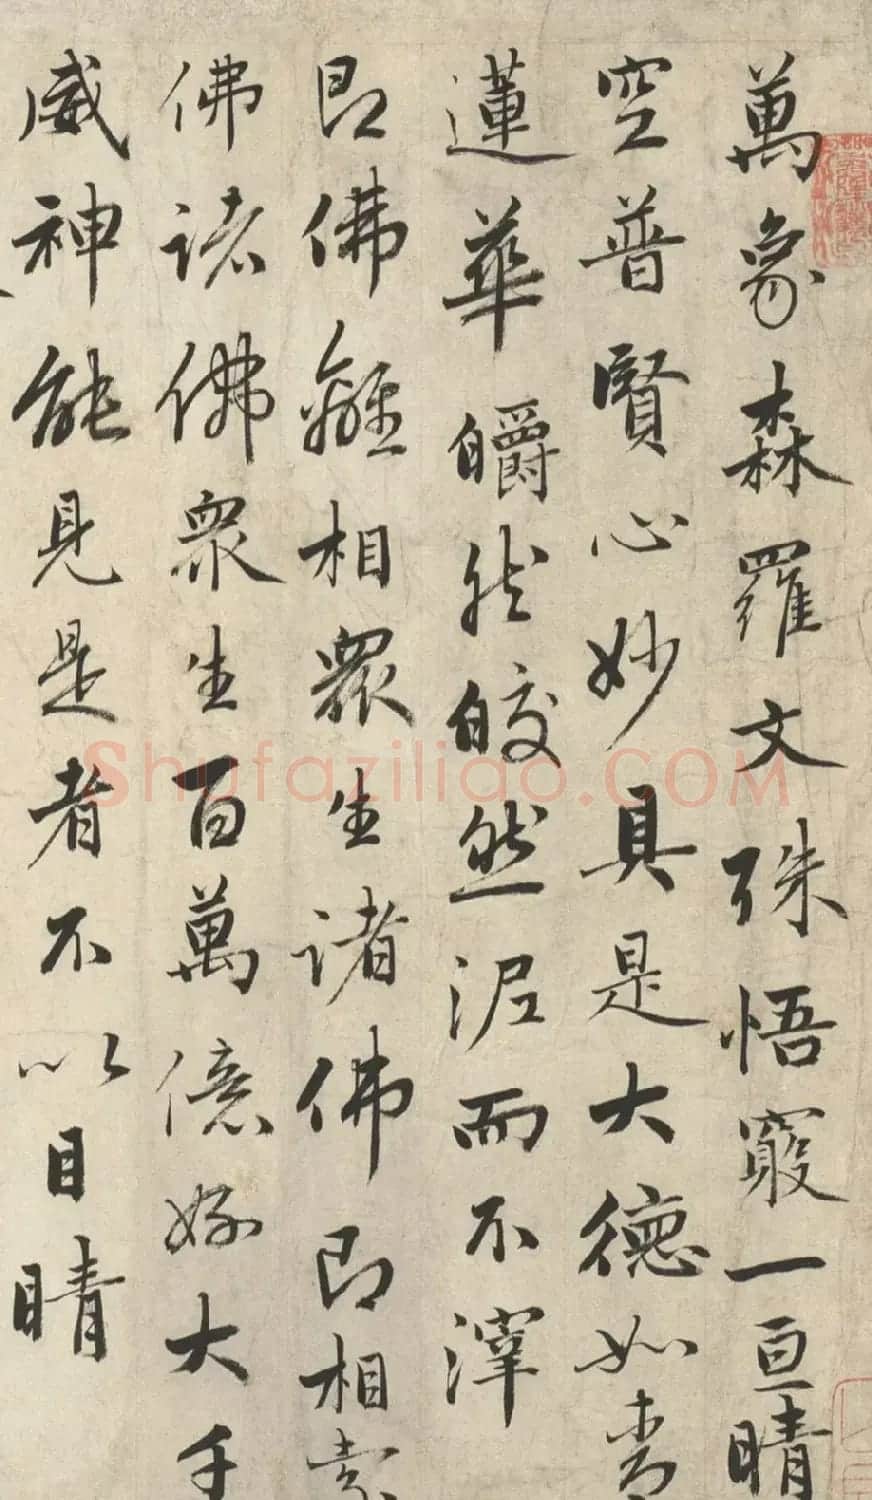 萬象森羅文殊悟竅一亘晴
空普賢心妙具是大德如青
蓮華皭然皎然泥而不滓
即佛離相衆生諸佛即相
佛諸佛衆生百萬億好大手
威神能見是者不以目睛
Shufaziliao.COM